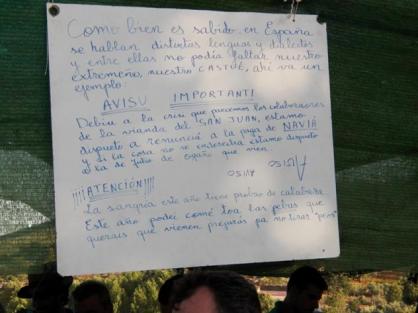 Como bien es sabido en España
se hablan distintas lenguas y dialectos
y entre ellas no podía faltar nuestro
extremeño, nuestro CASTÚE, ahí va un
ejemplo
AVISU IMPORTANTI
Debiu a la crisi que paecemos los colaboraores
de la vianda del SAN JUAN, estamo
dispueto a renunciá a la paga de NAVIÁ
y si la cosa no se endereza estamo dispueto
a la de Julio de egaño que vien.
AVISO
¡¡¡¡ATENCIÓN!!!!
La sangría este año tiene probao de calabaza
Este año podei comé toa las pebas que
querais que vienen preparás pa no tirar "peos"